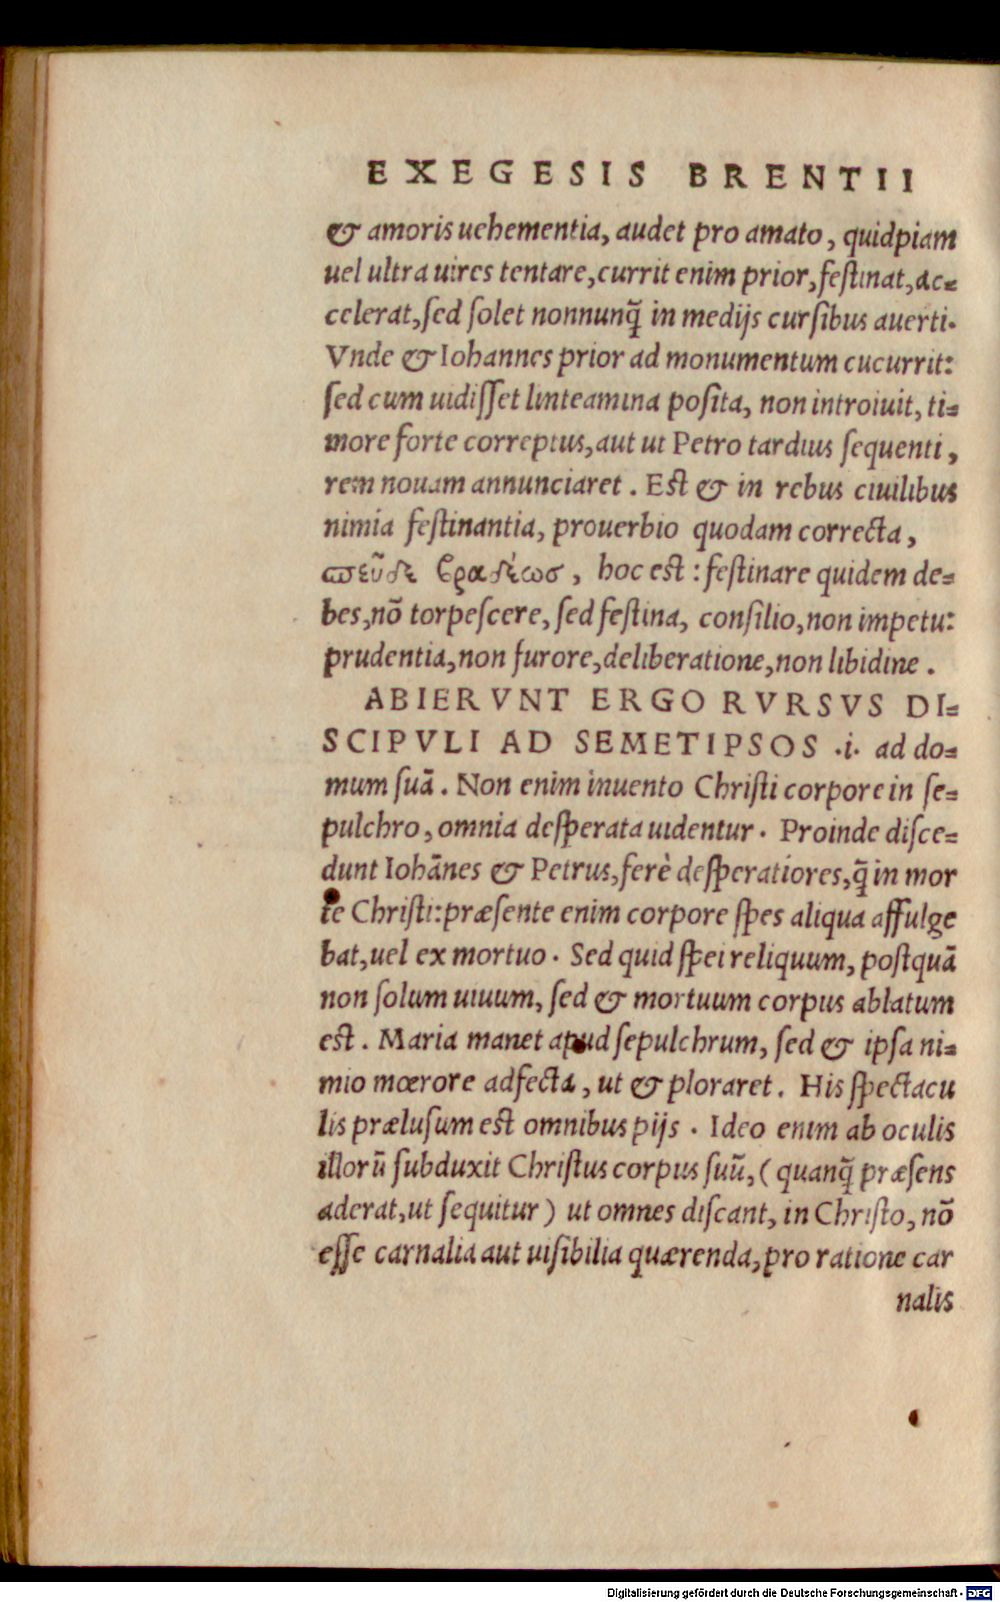 EXEGESIS BRENTII
& amoris uehementia, audet pro amato, quidpiam
uel ultra uires tentare, currit enim prior, festinat, ac⸗
celerat, sed solet nonnunq̃ in medijs cursibus auerti.
Vnde & Iohannes prior ad monumentum cucurrit:
sed cum uidisset linteamina posita, non introiuit, ti⸗
more forte correptus, aut ut Petro tardius sequenti,
rem nouam annunciaret. Est & in rebus ciuilibus
nimia festinantia, prouerbio quodam correcta,
ϖεῦδε βραδέωσ, hoc est: festinare quidem de⸗
bes, nõ torpescere, sed festina, consilio, non impetu:
prudentia, non furore, deliberatione, non libidine.
ABIERVNT ERGO RVRSVS DI⸗
SCIPVLI AD SEMETIPSOS .i. ad do⸗
mum suã. Non enim inuento Christi corpore in se⸗
pulchro, omnia desperata uidentur. Proinde disce⸗
dunt Iohãnes & Petrus, ferè desperatiores, q̃ in mor
te Christi: præsente enim corpore spes aliqua affulge
bat, uel ex mortuo. Sed quid spei reliquum, postquã
non solum uiuum, sed & mortuum corpus ablatum
est. Maria manet apud sepulchrum, sed & ipsa ni⸗
mio mœrore adfecta, ut & ploraret. His spectacu
lis prælusum est omnibus pijs. Ideo enim ab oculis
illorũ subduxit Christus corpus suũ, (quanq̃ præsens
aderat, ut sequitur) ut omnes discant, in Christo, nõ
esse carnalia aut uisibilia quærenda, pro ratione car
nalis
Digitalisierung gefördert durch die Deutsche Forschungsgemeinschaft - DFG